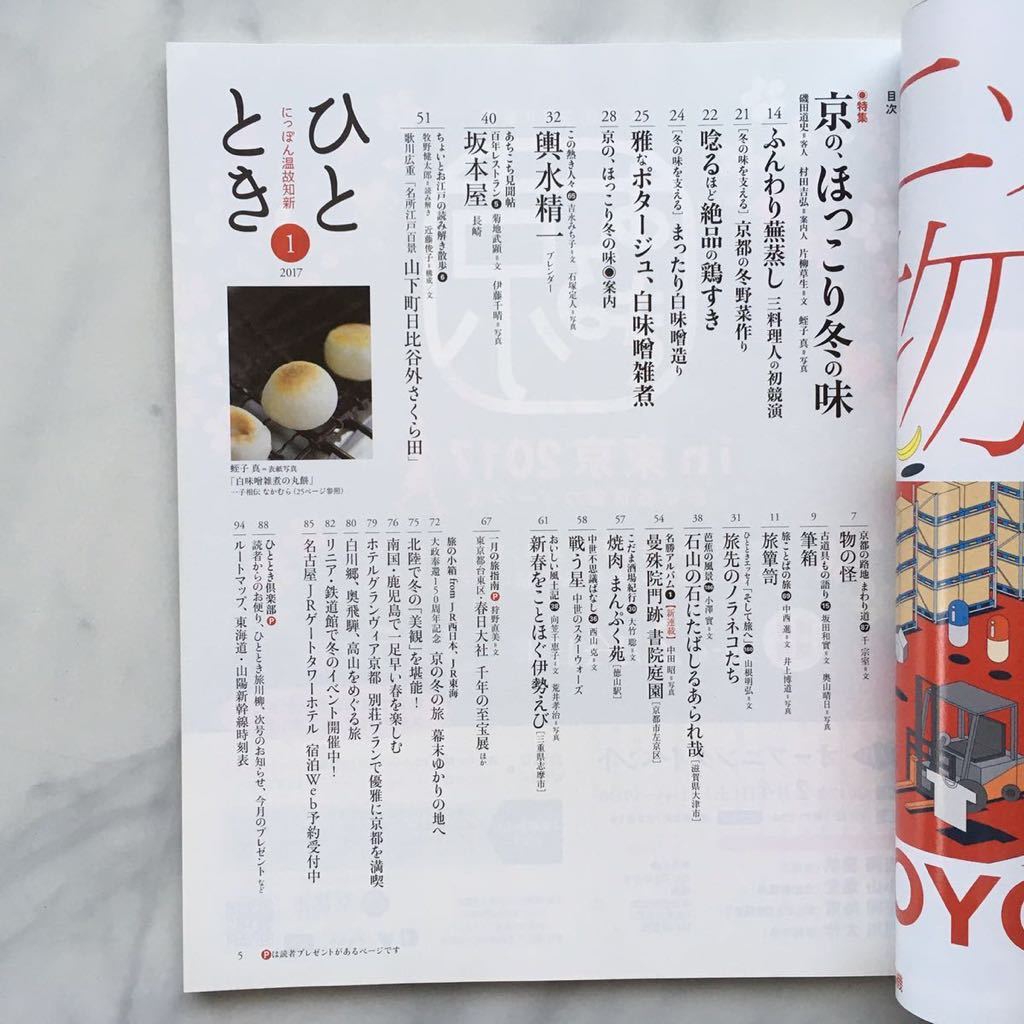 目次
●特集
京の、ほっこり冬の味
磯田道史=客人 村田吉弘=案内人 片柳草生=文 蛭子 真=写真
14
ふんわり蕪蒸し 三料理人の初競演
21
[冬の味を支える] 京都の冬野菜作り
22
唸るほど絶品の鶏すき
24
[冬の味を支える] まったり白味噌造り
25
雅なポタージュ、白味噌雑煮
28
京の、ほっこり冬の味●案内
32
この熱き人々 吉永みち子=文 石塚定人=写真
輿水精一 ブレンダー
40
あちこち見聞帖
百年レストラン5 菊地武顕=文 伊藤千晴=写真
坂本屋 長崎
51
ちょいとお江戸の読み解き散歩6
牧野健太郎=読み解き 近藤俊子=構成/文
歌川広重「名所江戸百景 山下町日比谷外さくら田」
ひととき
にっぽん温故知新
1
2017
蛭子 真=表紙写真
「白味噌雑煮の丸餅」
一子相伝 なかむら (25ページ参照)
7
京都の路地 まわり道87 千 宗室=文
物の怪
9
古道具もの語り16 坂田和實=文 奥山晴日=写真
筆箱
11
旅ことばの旅 中西 進=文 井上博道=写真
旅簞笥
31
ひとときエッセイ「そして旅へ」160 山根明弘=文
旅先のノラネコたち
38
芭蕉の風景 小澤 實=文
石山の石にたばしるあられ哉 [滋賀県大津市]
54
名勝アルバム1【新連載】 中田 昭=写真
曼殊院門跡 書院庭園 [京都市左京区]
57
こだま酒場紀行30 大竹 聡=文
焼肉 まんぷく苑 [徳山駅]
58
中世不思議ばなし36 西山 克=文
戦う星 中世のスターウォーズ
61
おいしい風土記38 向笠千恵子=文 荒井孝治=写真
新春をことほぐ伊勢えび [三重県志摩市]
67
一月の旅指南P 狩野直美=文
東京都台東区・春日大社 千年の至宝展 ほか
旅の小箱 from JR西日本、JR東海
72
大政奉還150周年記念 京の冬の旅 幕末ゆかりの地へ
75
北陸で冬の「美観」を堪能!
76
南国・鹿児島で一足早い春を楽しむ
79
ホテルグランヴィア京都 別荘プランで優雅に京都を満喫
80
白川郷、奥飛騨、高山をめぐる旅
82
リニア・鉄道館で冬のイベント開催中!
85
名古屋JRゲートタワーホテル 宿泊Web予約受付中
88
ひととき倶楽部P
読者からのお便り、ひととき旅川柳、次号のお知らせ、今月のプレゼントなど
94
ルートマップ、東海道・山陽新幹線時刻表
5
Pは読者プレゼントがあるページです
物
OYO